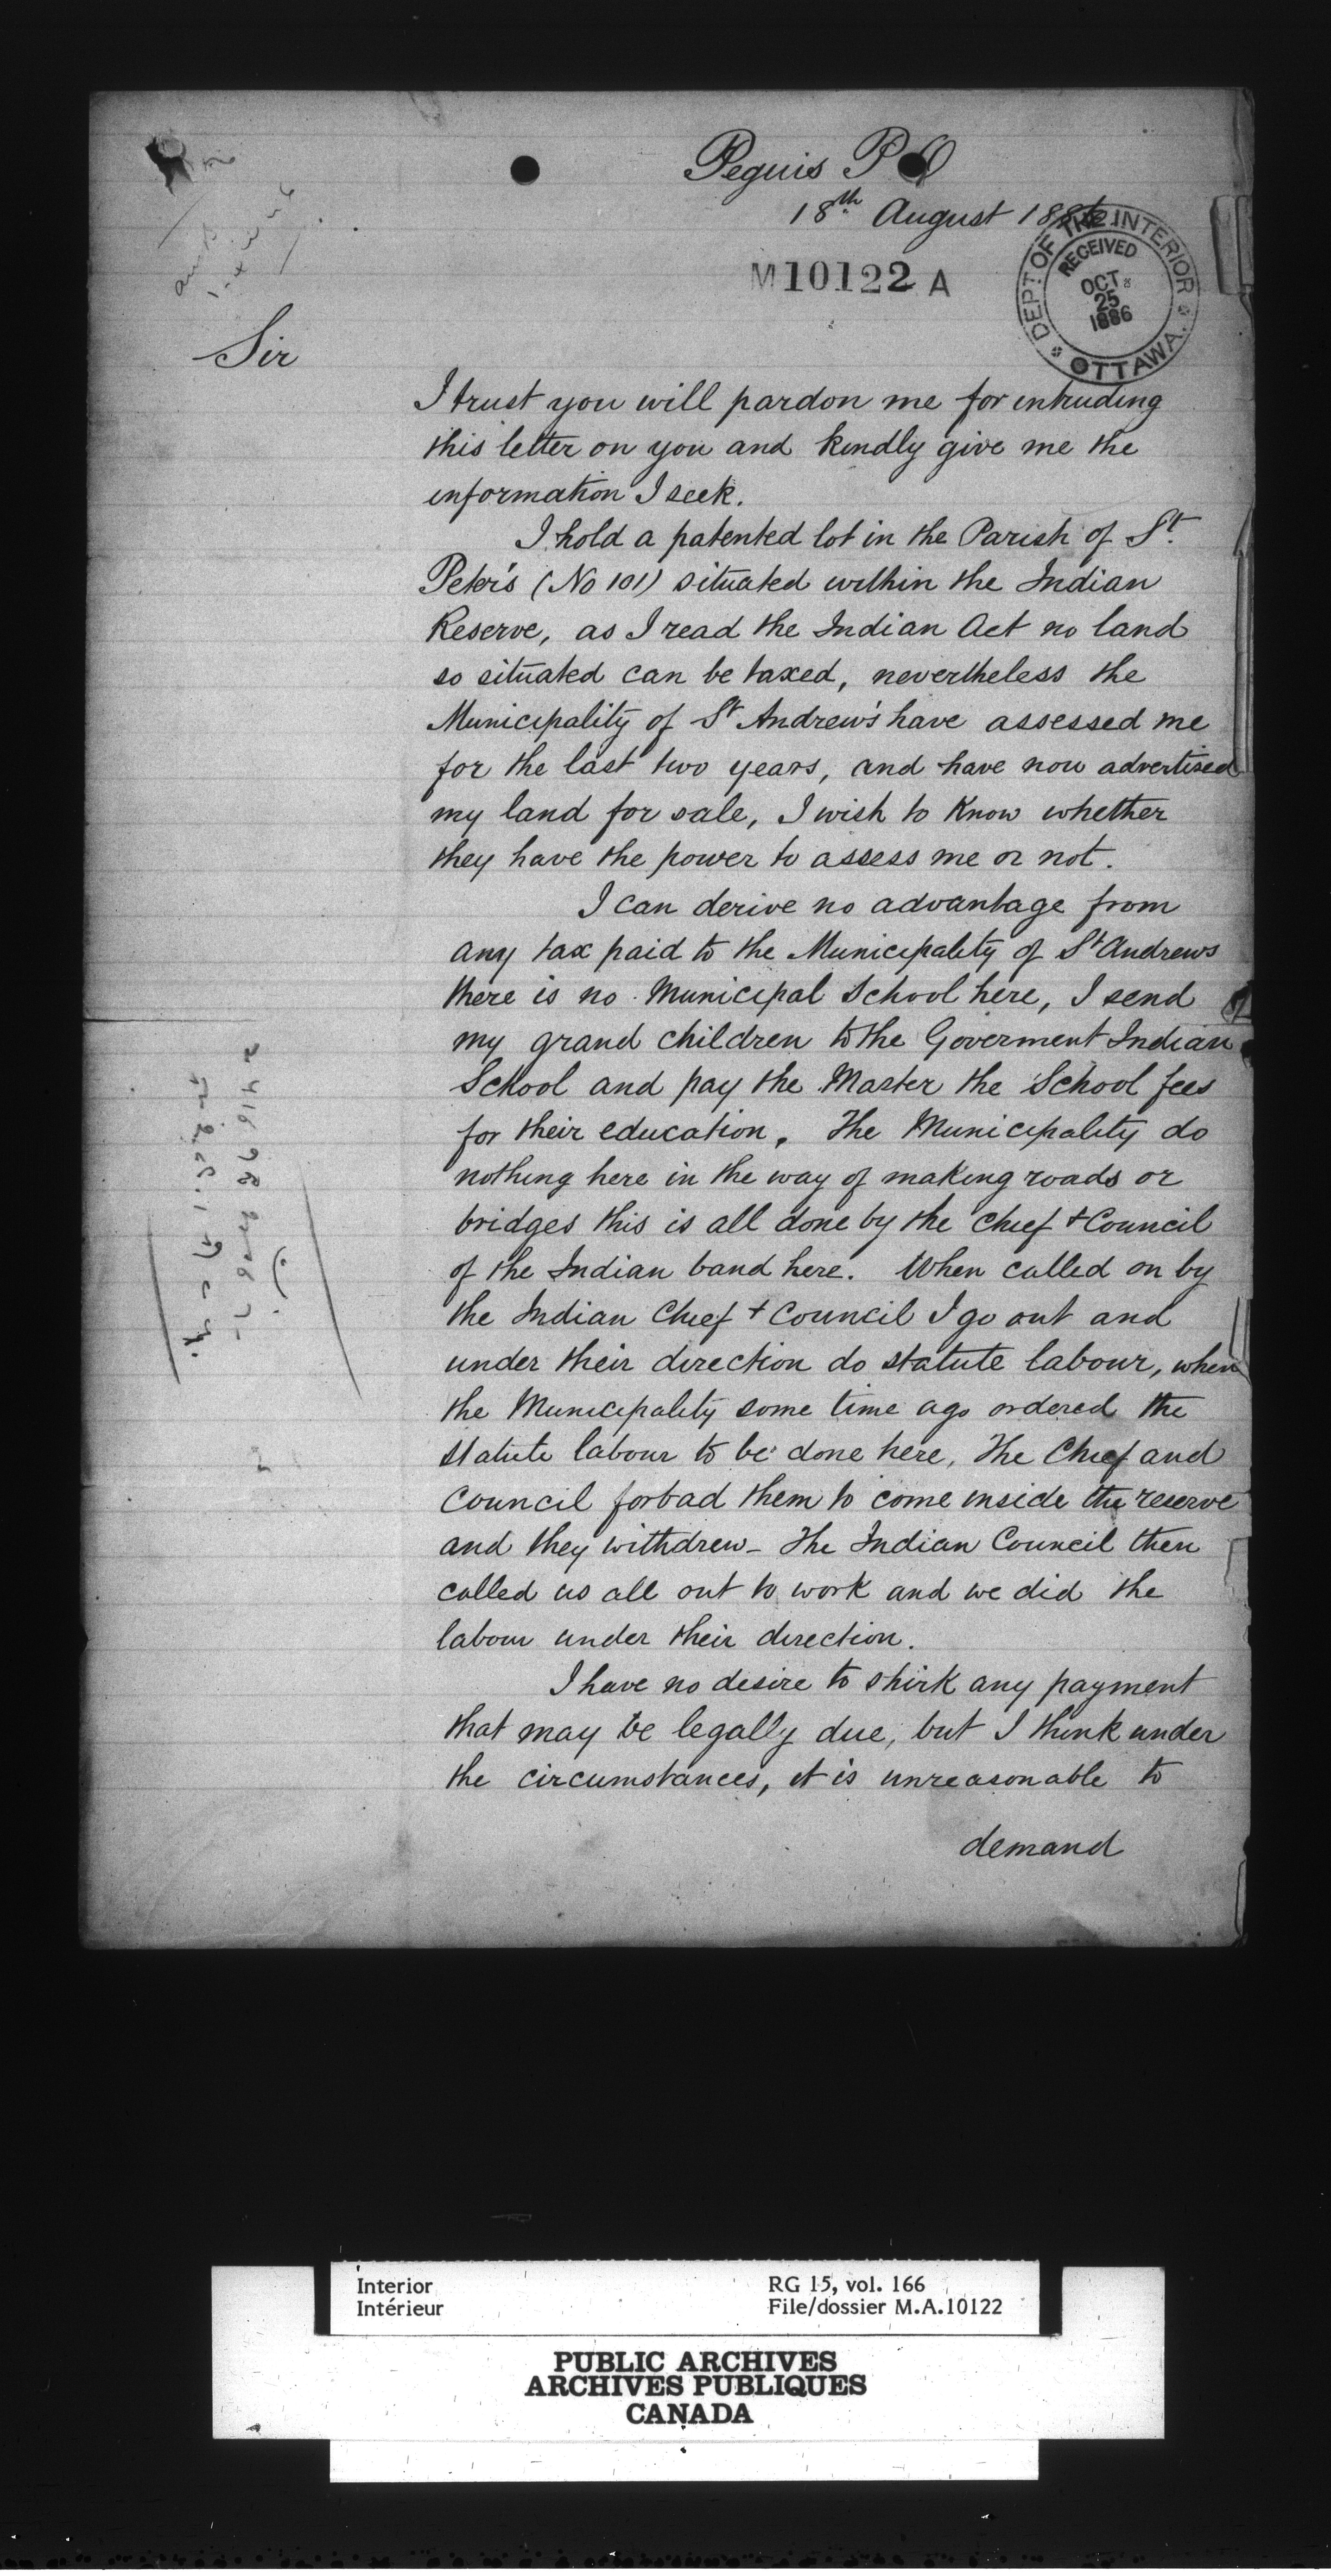 Peguis P O
18th August 1886
M10122 A
DEPT OF THE INTERIOR
RECEIVED
OCT
25
1886
OTTAWA.
Sir
I trust you will pardon me for intruding
this letter on you and kindly give me the
information I seek.
I hold a patented lot in the Parish of St.
Peter's (No 101) situated within the Indian
Reserve, as I read the Indian Act no land
so situated can be taxed, nevertheless the
Municipality of St Andrew's have assessed me
for the last two years, and have now advertised
my land for sale, I wish to know whether
they have the power to assess me or not.
I can derive no advantage from
any tax paid to the Municipality of St Andrews
there is no Municipal School here, I send
my grand children to the Goverment Indian
School and pay the Master the School fees
for their education. The Municipality do
nothing here in the way of making roads or
bridges this is all done by the Chief + Council
of the Indian band here. When called on by
the Indian Chief + Council I go out and
under their direction do statute labour, when
the Municipality some time ago ordered the
statute labour to be done here, The Chief and
Council forbad them to come inside the reserve
and they withdrew – The Indian Council then
called us all out to work and we did the
labour under their direction.
I have no desire to shirk any payment
that may be legally due, but I think under
the circumstances, it is unreasonable to
demand
Interior
Intérieur
RG 15, vol. 166
File/dossier M.A.10122
PUBLIC ARCHIVES
ARCHIVES PUBLIQUES
CANADA